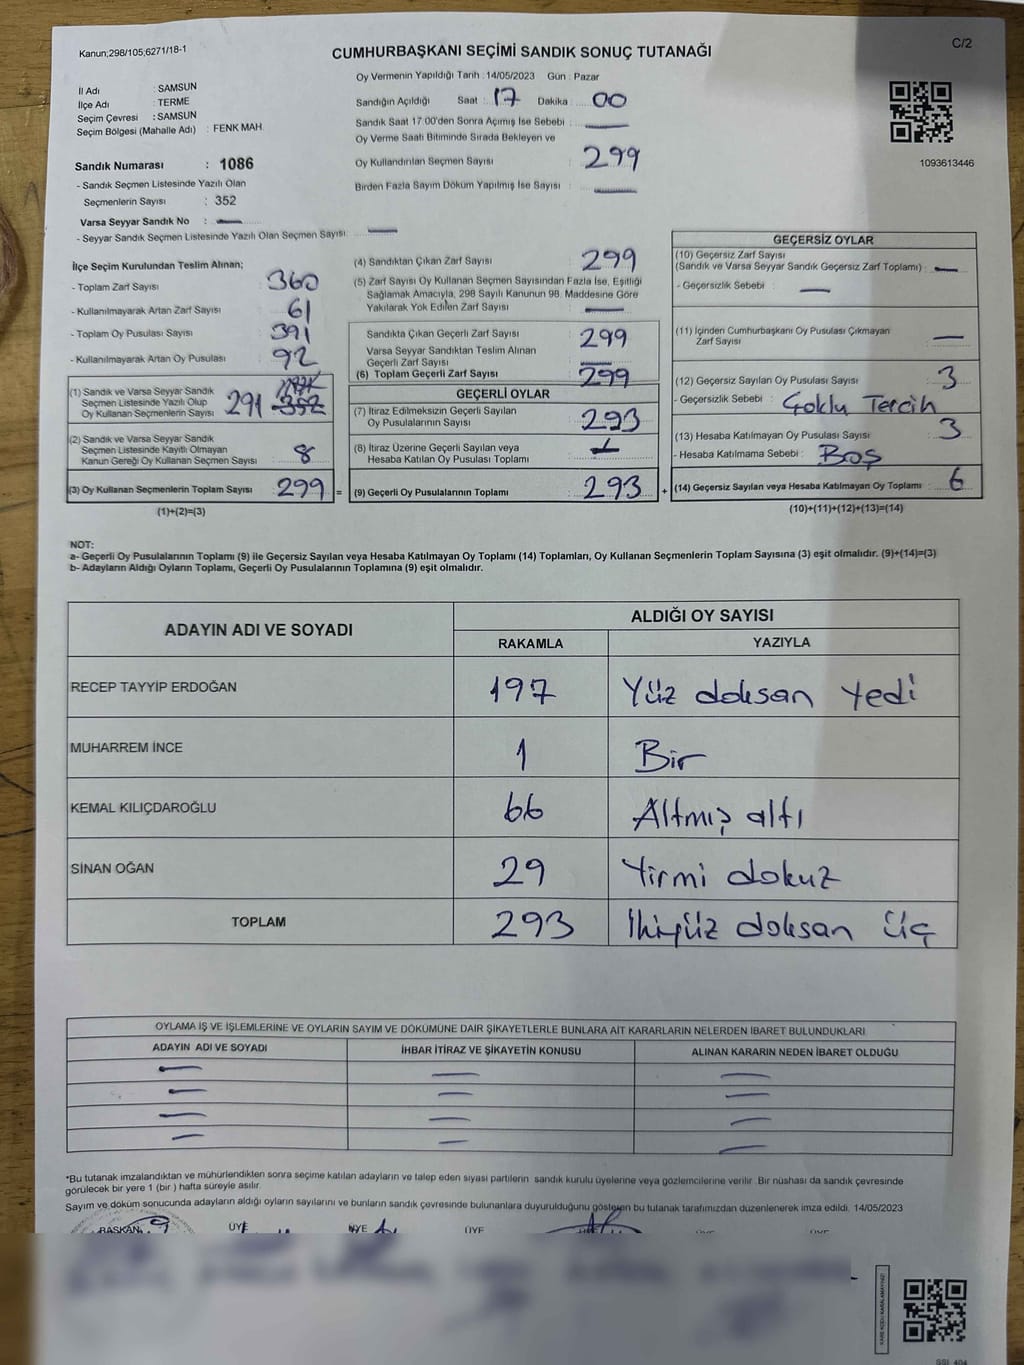 Kanun;298/105;6271/18-1
C/2
CUMHURBAŞKANI SEÇİMİ SANDIK SONUÇ TUTANAĞI
Oy Vermenin Yapıldığı Tarih :14/05/2023 Gün : Pazar
İl Adı : SAMSUN
İlçe Adı : TERME
Seçim Çevresi : SAMSUN
Seçim Bölgesi (Mahalle Adı) : FENK MAH.
Sandık Numarası : 1086
- Sandık Seçmen Listesinde Yazılı Olan
Seçmenlerin Sayısı : 352
Varsa Seyyar Sandık No : —
- Seyyar Sandık Seçmen Listesinde Yazılı Olan Seçmen Sayısı: —
Sandığın Açıldığı Saat : 17 Dakika : 00
Sandık Saat 17:00'den Sonra Açımış İse Sebebi : —
Oy Verme Saati Bitiminde Sırada Bekleyen ve
Oy Kullandırılan Seçmen Sayısı : 299
Birden Fazla Sayım Döküm Yapılmış İse Sayısı : —
1093613446
İlçe Seçim Kurulundan Teslim Alınan;
- Toplam Zarf Sayısı : 360
- Kullanılmayarak Artan Zarf Sayısı : 61
- Toplam Oy Pusulası Sayısı : 391
- Kullanılmayarak Artan Oy Pusulası : 92
(1) Sandık ve Varsa Seyyar Sandık
Seçmen Listesinde Yazılı Olup
Oy Kullanan Seçmenlerin Sayısı : 291 352
(2) Sandık ve Varsa Seyyar Sandık
Seçmen Listesinde Kayıtlı Olmayan
Kanun Gereği Oy Kullanan Seçmen Sayısı : 8
(3) Oy Kullanan Seçmenlerin Toplam Sayısı : 299 =
(1)+(2)=(3)
(4) Sandıktan Çıkan Zarf Sayısı : 299
(5) Zarf Sayısı Oy Kullanan Seçmen Sayısından Fazla İse, Eşitliği
Sağlamak Amacıyla, 298 Sayılı Kanunun 98. Maddesine Göre
Yakılarak Yok Edilen Zarf Sayısı : —
Sandıkta Çıkan Geçerli Zarf Sayısı : 299
Varsa Seyyar Sandıktan Teslim Alınan
Geçerli Zarf Sayısı : —
(6) Toplam Geçerli Zarf Sayısı : 299
GEÇERLİ OYLAR
(7) İtiraz Edilmeksizin Geçerli Sayılan
Oy Pusulalarının Sayısı : 293
(8) İtiraz Üzerine Geçerli Sayılan veya
Hesaba Katılan Oy Pusulası Toplamı :
(9) Geçerli Oy Pusulalarının Toplamı : 293 +
GEÇERSİZ OYLAR
(10) Geçersiz Zarf Sayısı
(Sandık ve Varsa Seyyar Sandık Geçersiz Zarf Toplamı) : —
- Geçersizlik Sebebi : —
(11) İçinden Cumhurbaşkanı Oy Pusulası Çıkmayan
Zarf Sayısı : —
(12) Geçersiz Sayılan Oy Pusulası Sayısı : 3
- Geçersizlik Sebebi : Çoklu Tercih
(13) Hesaba Katılmayan Oy Pusulası Sayısı : 3
- Hesaba Katılmama Sebebi : Boş
(14) Geçersiz Sayılan veya Hesaba Katılmayan Oy Toplamı : 6
(10)+(11)+(12)+(13)=(14)
NOT:
a- Geçerli Oy Pusulalarının Toplamı (9) ile Geçersiz Sayılan veya Hesaba Katılmayan Oy Toplamı (14) Toplamları, Oy Kullanan Seçmenlerin Toplam Sayısına (3) eşit olmalıdır. (9)+(14)=(3)
b- Adayların Aldığı Oyların Toplamı, Geçerli Oy Pusulalarının Toplamına (9) eşit olmalıdır.
ADAYIN ADI VE SOYADI ALDIĞI OY SAYISI
RAKAMLA YAZIYLA
RECEP TAYYİP ERDOĞAN 197 Yüz doksan yedi
MUHARREM İNCE 1 Bir
KEMAL KILIÇDAROĞLU 66 Altmış altı
SİNAN OĞAN 29 Yirmi dokuz
TOPLAM 293 İkiyüz doksan üç
OYLAMA İŞ VE İŞLEMLERİNE VE OYLARIN SAYIM VE DÖKÜMÜNE DAİR ŞİKAYETLERLE BUNLARA AİT KARARLARIN NELERDEN İBARET BULUNDUKLARI
ADAYIN ADI VE SOYADI İHBAR İTİRAZ VE ŞİKAYETİN KONUSU ALINAN KARARIN NEDEN İBARET OLDUĞU
— — —
— — —
— — —
— — —
*Bu tutanak imzalandıktan ve mühürlendikten sonra seçime katılan adayların ve talep eden siyasi partilerin sandık kurulu üyelerine veya gözlemcilerine verilir. Bir nüshası da sandık çevresinde
görülecek bir yere 1 (bir ) hafta süreyle asılır.
Sayım ve döküm sonucunda adayların aldığı oyların sayılarını ve bunların sandık çevresinde bulunanlara duyurulduğunu gösteren bu tutanak tarafımızdan düzenlenerek imza edildi. 14/05/2023
BAŞKAN ÜYE ÜYE ÜYE ÜYE ÜYE